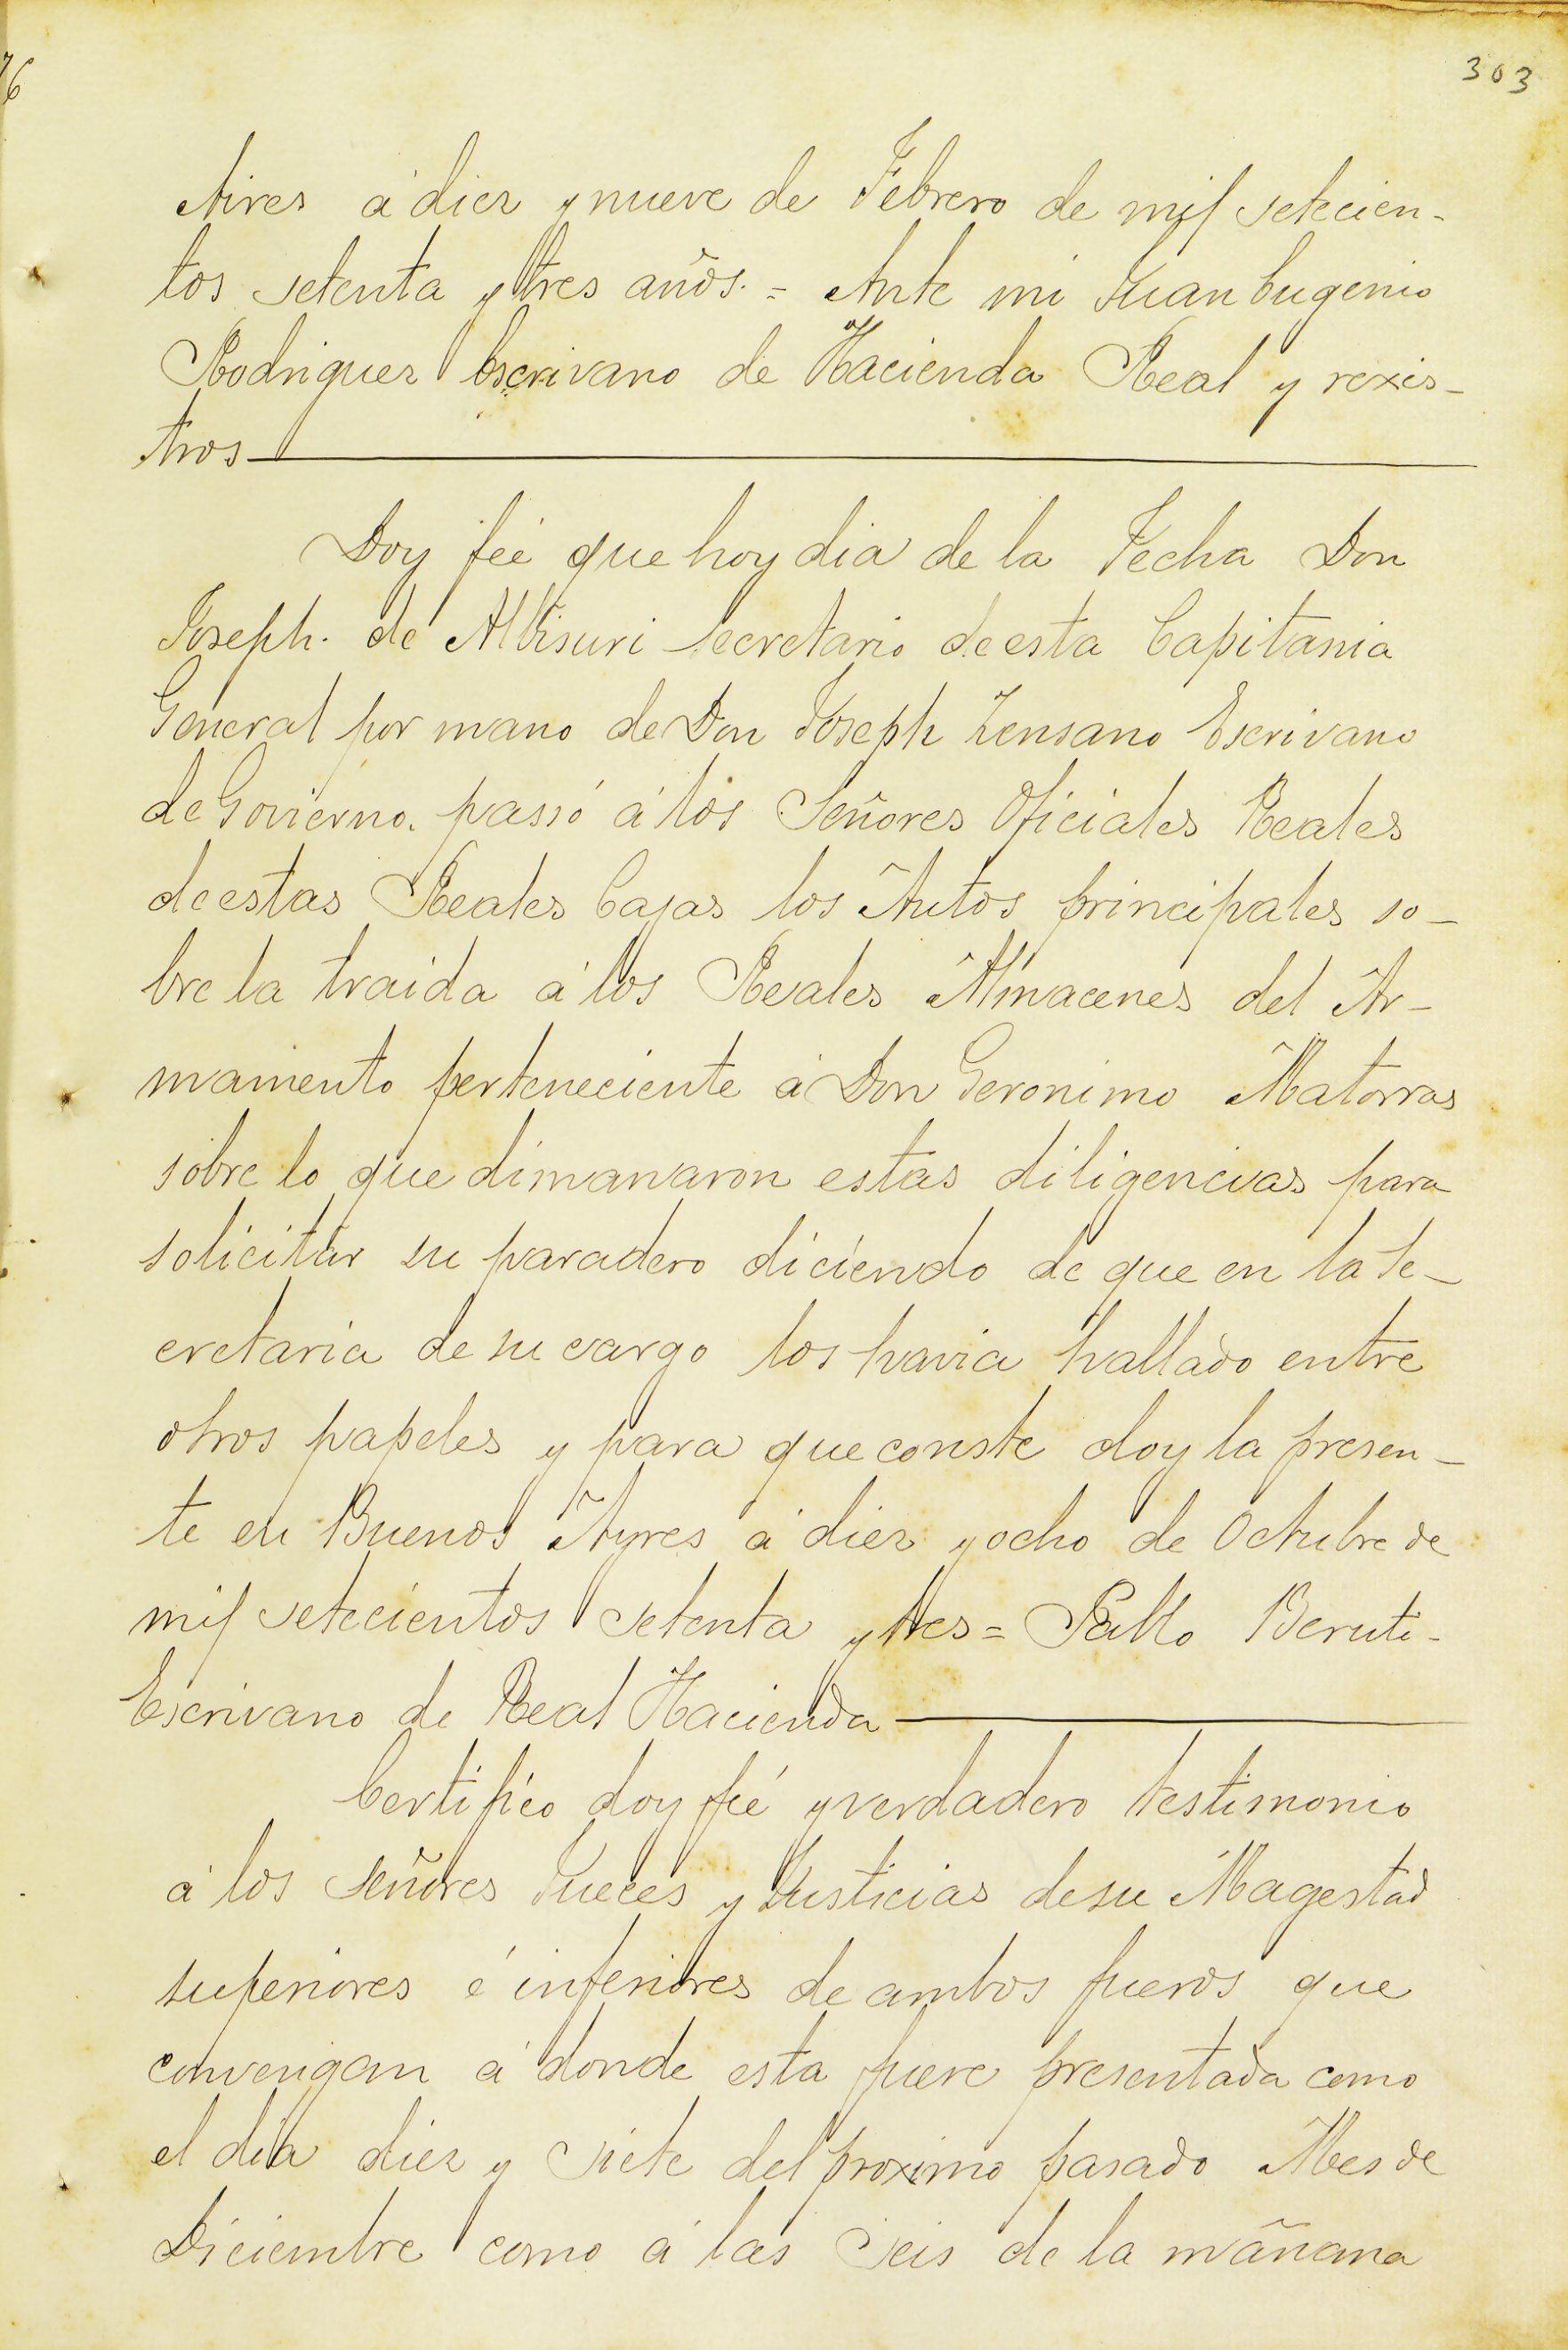 303
Aires á diez y nueve de Febrero de mil setecien-
tos setenta y tres años. = Ante mi Juan Eugenio
Rodriguez Escrivano de Hacienda Real y rexis-
tros
Doy feé que hoy dia de la Fecha Don
Joseph. de Albisuri secretario de esta Capitania
General por mano de Don Joseph Zensano Escrivano
de Govierno. passó á los Señores Oficiales Reales
de estas Reales Cajas los Autos principales so-
bre la traida á los Reales Almacenes del Ar-
mamento perteneciente á Don Geronimo Matorras
sobre lo que dimanaron estas diligencias para
solicitar su paradero diciendo de que en la Se-
cretaria de su cargo los havia hallado entre
otros papeles y para que conste doy la presen-
te en Buenos Ayres á diez y ocho de Octubre de
mil setecientos setenta y tres = Pablo Beruti-
Escrivano de Real Hacienda
Certifico doy fé y verdadero testimonio
á los Señores Jueces y Justicias de su Magestad
superiores é inferiores de ambos fueros que
convengan á donde esta fuere presentada como
el dia diez y siete del proximo pasado Mes de
Diciembre como á las seis de la mañana